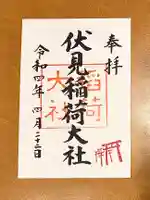 奉拝
伏見稲荷大社
稲荷
大社
令和四年四月二十二日